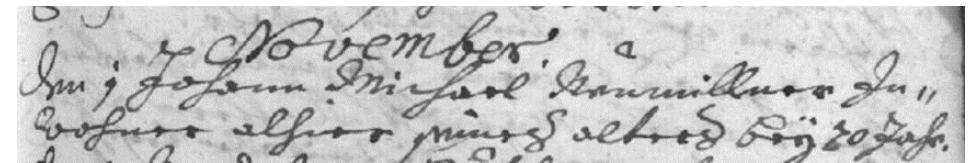 November.
den 1 Johann Michael Neumillner In„
wohner alhier seines alters beÿ 70 Jahr.